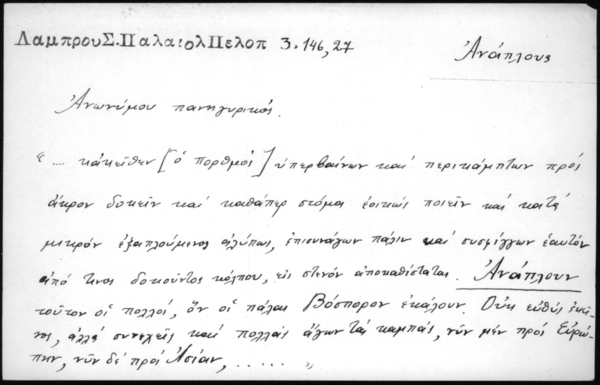 ΛαμπρουΣ.ΠαλαιολΠελοπ 3.146,27
Ἀνάπλους
Ἀνωνύμου πανηγυρικός.
« .... κἀκεῖθεν [ὁ πορθμὸς] ὑπερβαίνων καὶ περικάμπτων πρὸς
ἄκρον δοκεῖν καὶ καθάπερ στόμα ἐοικὼς ποιεῖν καὶ κατὰ
μικρὸν ἐξαπλούμενος ἀλύπως, ἐπισυνάγων πάλιν καὶ συσφίγγων ἑαυτὸν
ἀπό τινος δοκοῦντος κόλπου, εἰς στενὸν ἀποκαθίσταται. Ἀνάπλουν
τοῦτον οἱ πολλοί, ὃν οἱ πάλαι Βόσπορον ἐκάλουν. Οὐκ εὐθὺς ἐκεῖ-
νος, ἀλλὰ συνεχεῖς καὶ πολλὰς ἄγων τὰς καμπάς, νῦν μὲν πρὸς Εὐρώ-
πην, νῦν δὲ πρὸς Ἀσίαν, ...... »